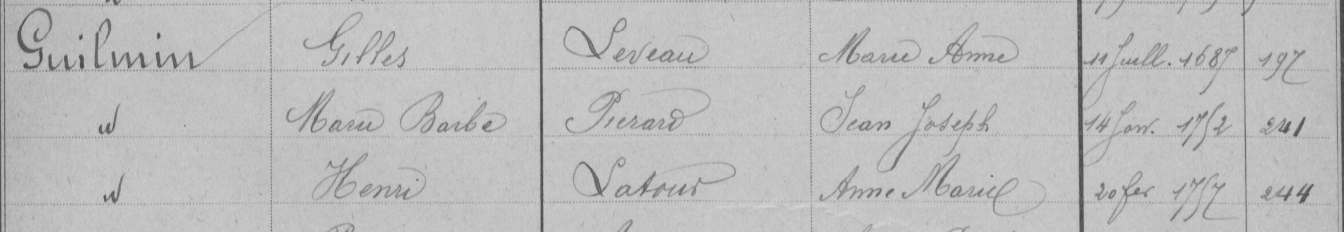 Guilmin Gilles Leveau Marie Anne 11 Juill. 1687 197
id Marie Barbe Pierard Jean Joseph 14 Janv. 1752 241
id Henri Latour Anne Marie 20 fev 1757 244